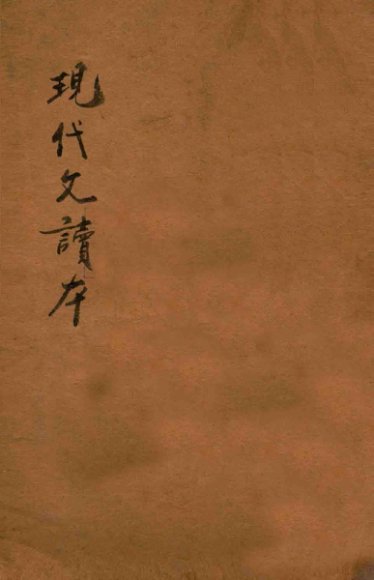 現代文讀本